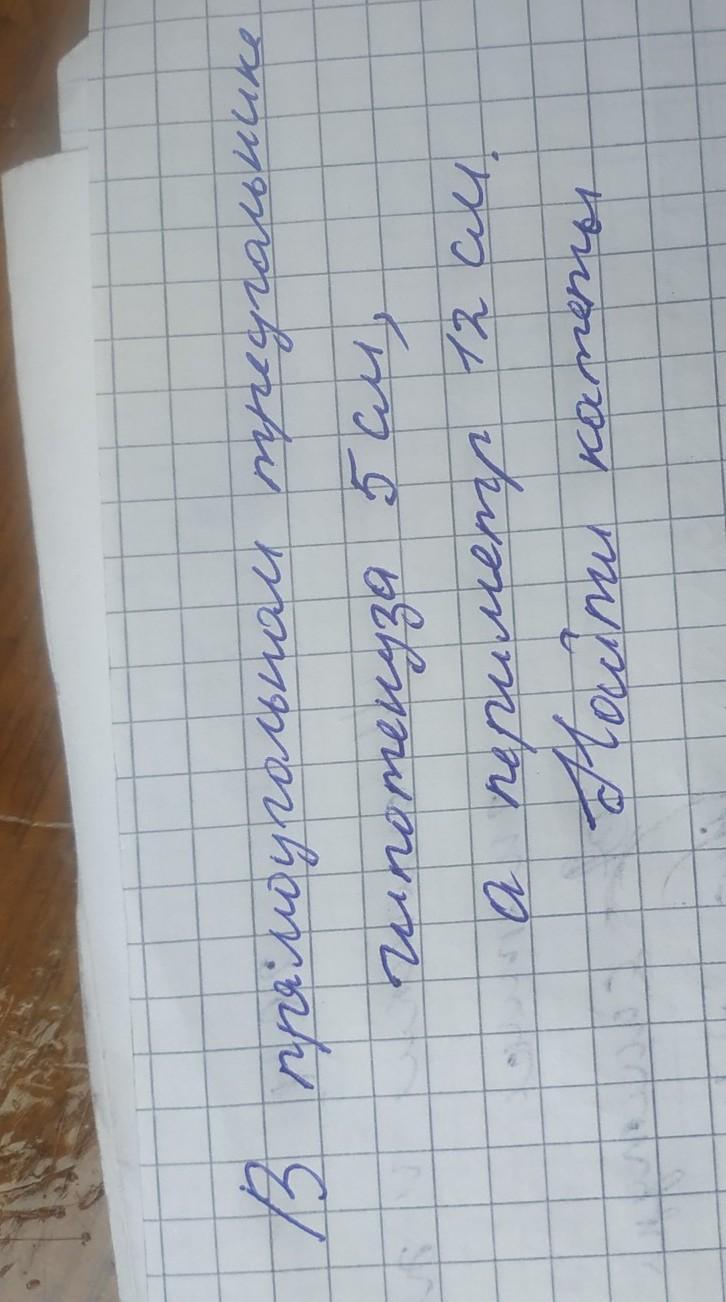 В прямоугольном треугольнике
гипотенуза 5 см,
а периметр 12 см.
Найти катеты